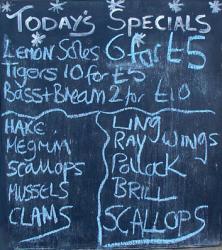 TODAY'S SPECIALS
LEMON Soles 6 for £5
Tigers 10 for £5
Bass+Bream 2 for £10
HAKE
MEGRIM
SCALLOPS
MUSSELS
CLAMS
LING
RAY WINGS
Pollock
BRILL
SCALLOPS